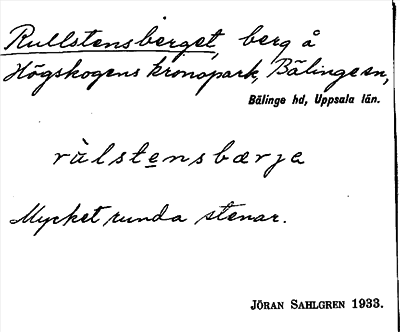 Rullstensberget, berg å
Högskogens kronopark, Bälinge sn,
Bälinge hd, Uppsala län.
rùlstensbærje
Mycket runda stenar.
JÖRAN SAHLGREN 1933.